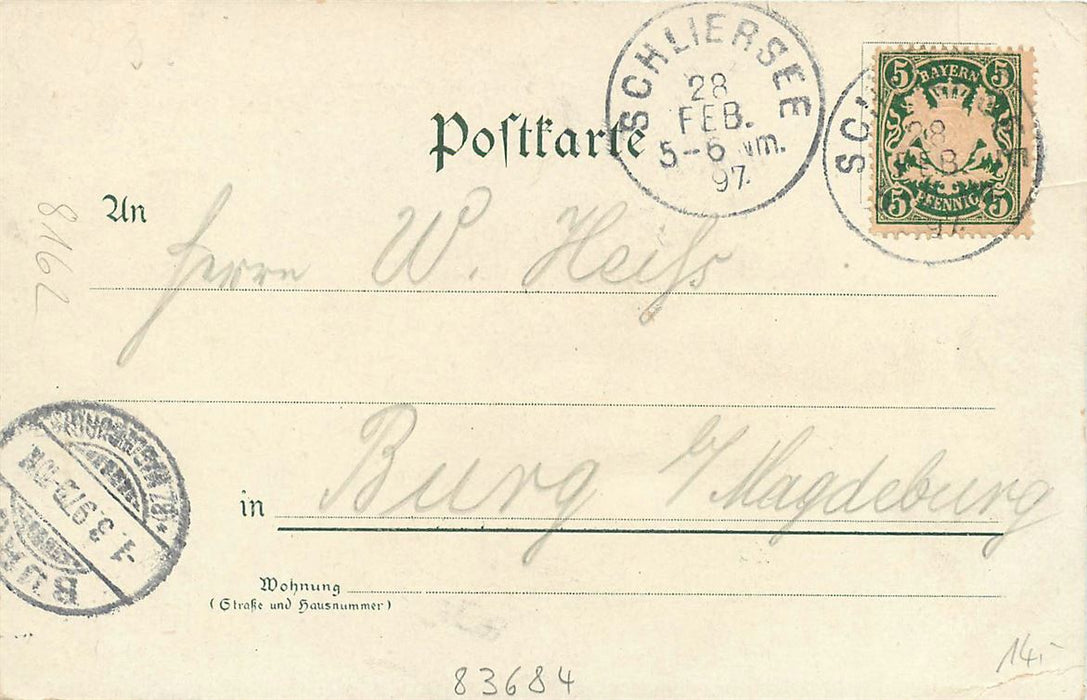 SCHLIERSEE
28
FEB.
5-6 Nm.
97.
5 BAYERN 5
5 PFENNIG 5
28
97.
Poſtkarte
An
Herrn W. Heiſs
8162
Burg b/ Magdeburg
in
-1.3.97
Wohnung
(Straße und Hausnummer)
83684
14.-